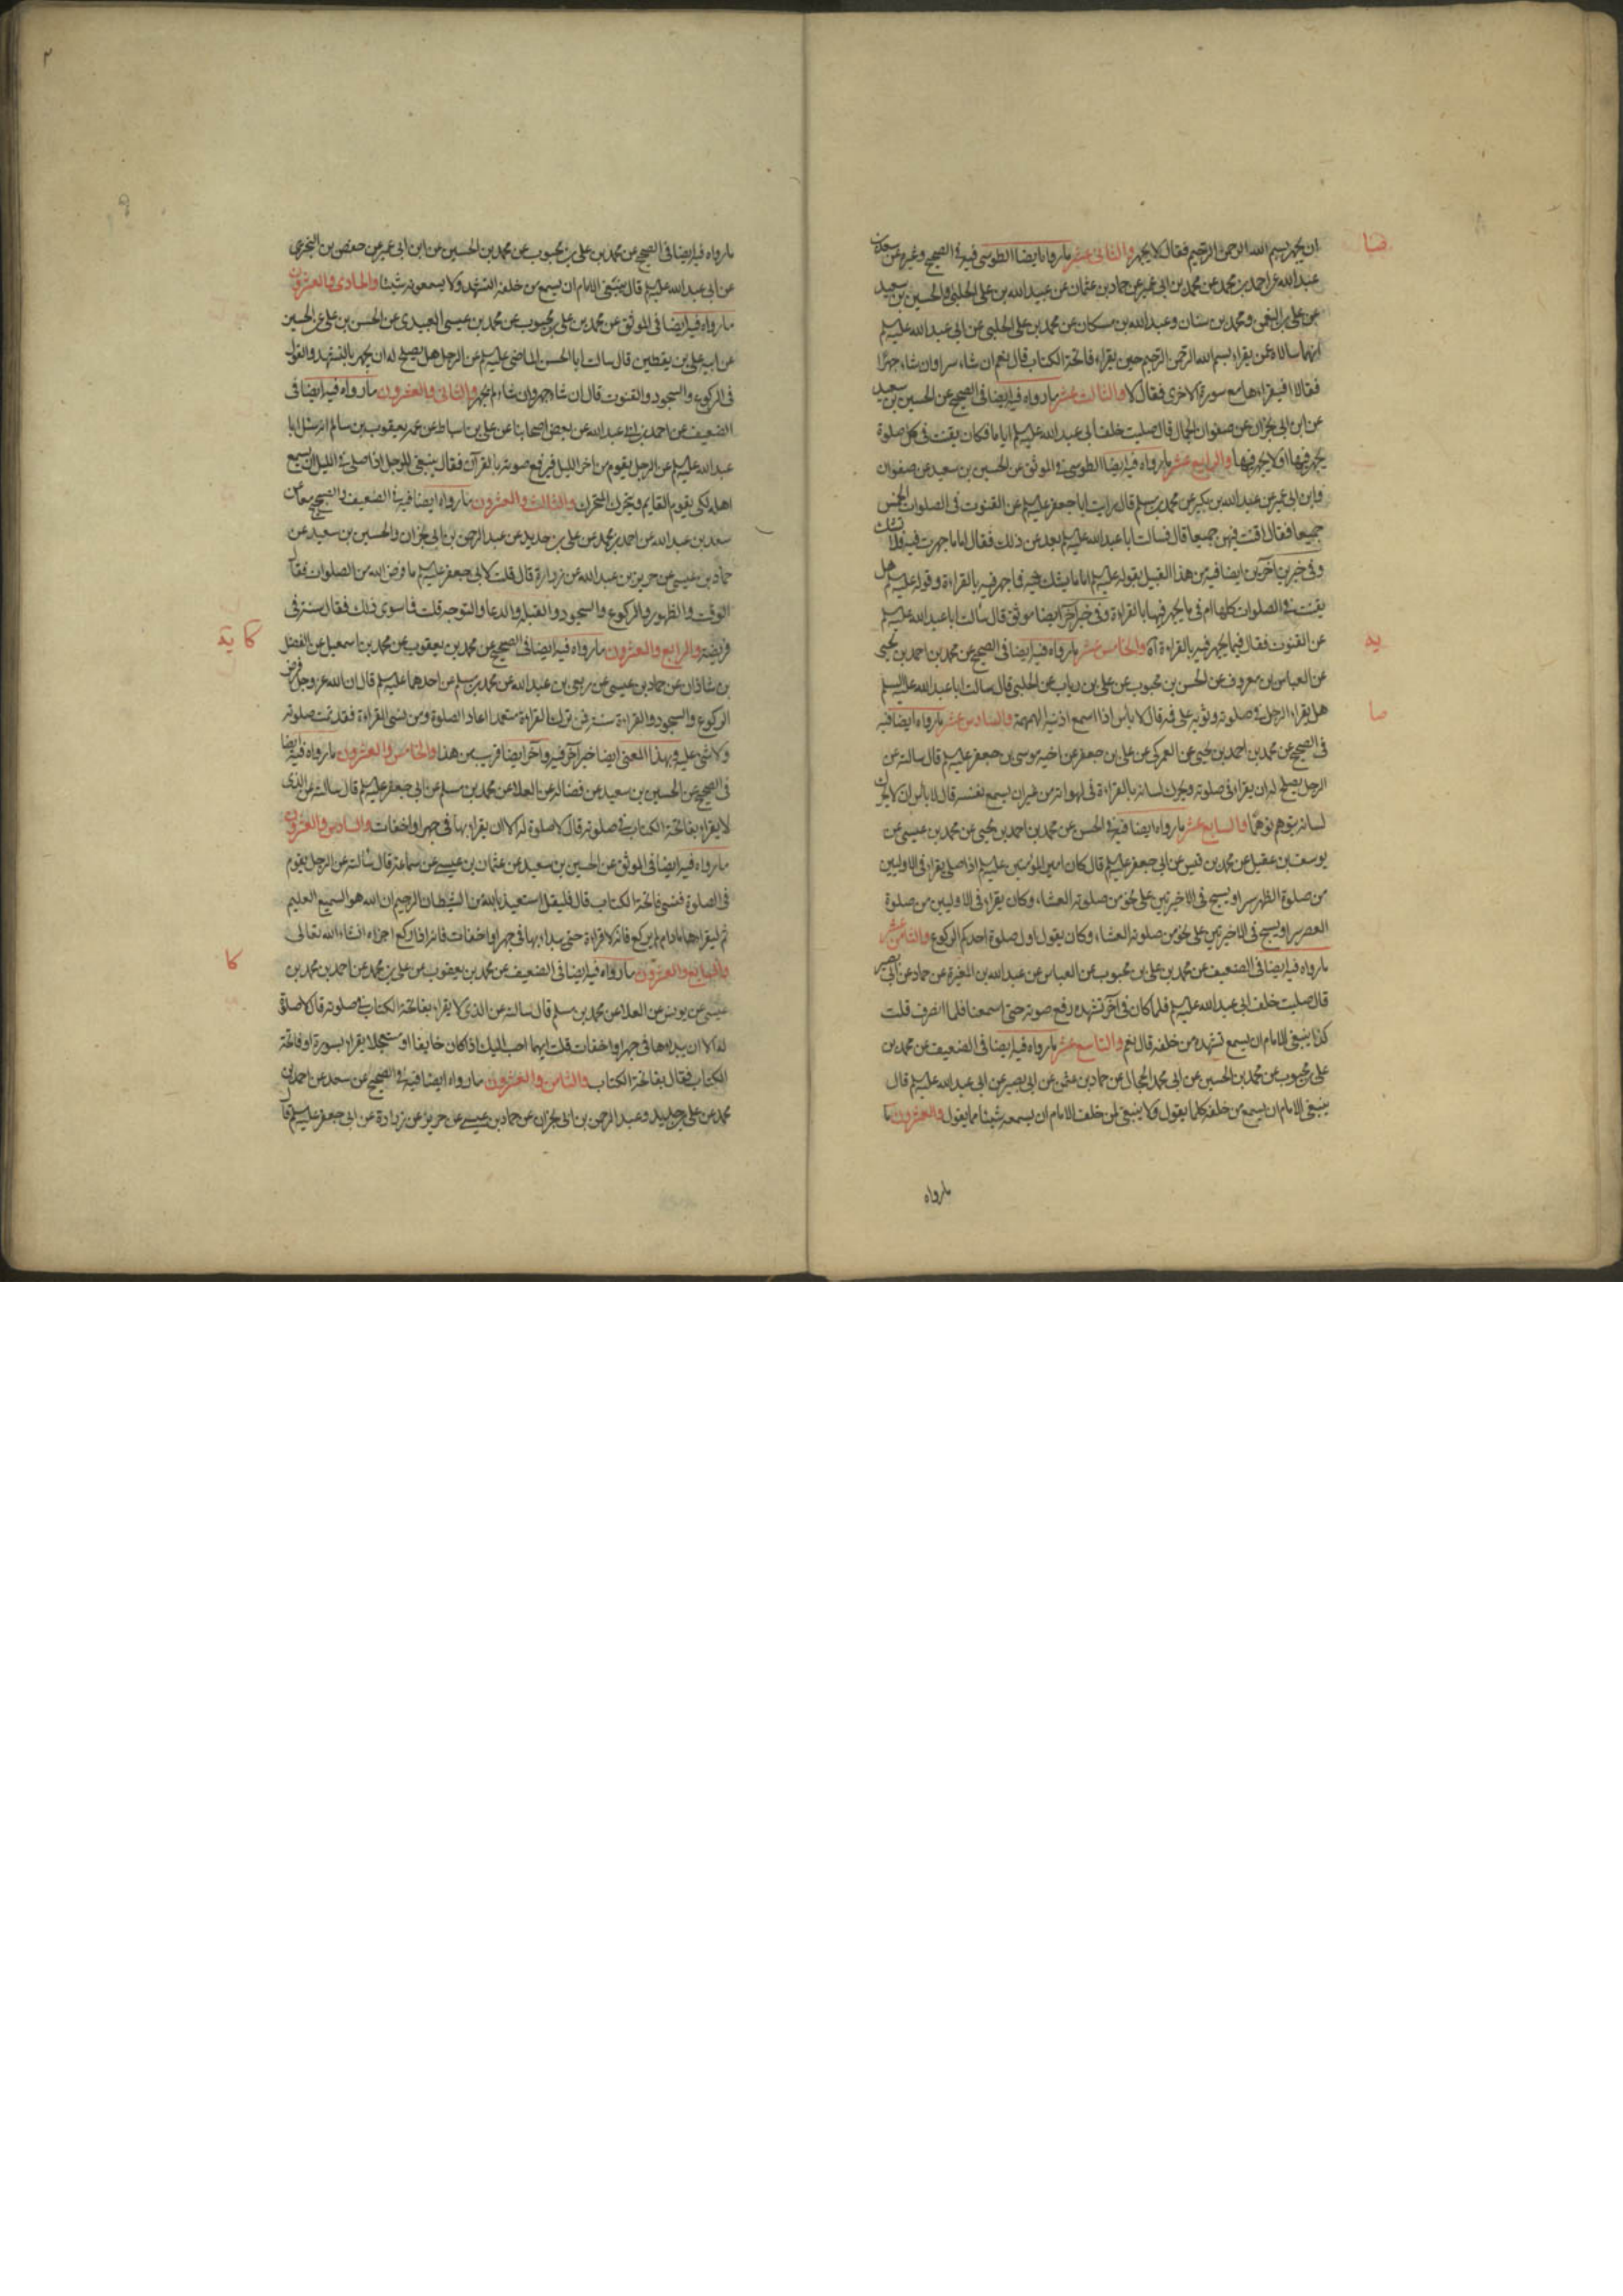 ان يجهر ببسم الله الرحمن الرحيم فقال لا يجهر والثاني عشر ما رواه ايضا الطوسي فيه في الصحيح وغيره عن سعد بن
عبد الله عن احمد بن محمد عن محمد بن ابي عمير عن حماد بن عثمان عن عبيد الله بن علي الحلبي والحسين بن سعيد
عن علي بن النعمن ومحمد بن سنان وعبد الله بن مسكان عن محمد بن علي الحلبي عن ابي عبد الله عليه السلم
انهما سالاه عن يقراء بسم الله الرحمن الرحيم حين يقراء فاتحة الكتاب قال نعم ان شاء سرا وان شاء جهرا
فقالا افيقراءها مع سورة الاخرى فقال لا والثالث عشر ما رواه فيه ايضا في الصحيح عن الحسين بن سعيد
عن ابن ابي نجران عن صفوان الجمال قال صليت خلف ابي عبد الله عليه السلم اياما فكان يقنت في كل صلوة
يجهر فيها او لا يجهر فيها والرابع عشر ما رواه فيه ايضا الطوسي في الموثق عن الحسين بن سعيد عن صفوان
وابن ابي عمير عن عبد الله بن بكير عن محمد بن مسلم قال سالت ابا جعفر عليه السلم عن القنوت في الصلوات الخمس
جميعا فقال اقنت فيهن جميعا قال فسالت ابا عبد الله عليه السلم بعد عن ذلك فقال اما ما جهرت فيه فلا تشك
وفي خبرين آخرين ايضا فيه من هذا القبيل بقوله عليه السلم اما ما يشك فيه فما جهر فيه بالقراءة وقوله عليه السلم هل
يقنت في الصلوات كلها ام في ما يجهر فيها بالقراءة وفي خبر آخر ايضا موثق قال سالت ابا عبد الله عليه السلم
عن القنوت فقال فيما يجهر فيه بالقراءة والخامس عشر ما رواه فيه ايضا في الصحيح عن محمد بن احمد بن يحيى
عن العباس بن معروف عن الحسن بن محبوب عن علي بن رياب عن الحلبي قال سالت ابا عبد الله عليه السلم
هل يقراء الرجل في صلوته وثوبه على فيه قال لا باس اذا اسمع اذنيه الهمهمة والسادس عشر ما رواه ايضا فيه
في الصحيح عن محمد بن احمد بن يحيى عن العمركي عن علي بن جعفر عن اخيه موسى بن جعفر عليه السلم قال سالته عن
الرجل يصلح له ان يقراء في صلوته ويحرك لسانه بالقراءة في لهواته من غير ان يسمع نفسه قال لا باس ان لا يحرك
لسانه يتوهم توهما والسابع عشر ما رواه ايضا فيه في الحسن عن محمد بن احمد بن يحيى عن محمد بن عيسى عن
يوسف بن عقيل عن محمد بن قيس عن ابي جعفر عليه السلم قال كان امير المؤمنين عليه السلم اذا صلى يقراء في الاوليين
من صلوة الظهر سرا ويسبح في الاخيرتين على نحو من صلوته العشاء وكان يقراء في الاوليين من صلوة
العصر سرا ويسبح في الاخيرتين على نحو من صلوته العشاء وكان يقول اول صلوة احدكم الركوع والثامن عشر
ما رواه فيه ايضا في الضعيف عن محمد بن علي بن محبوب عن العباس عن عبد الله بن المغيرة عن حماد عن ابي بصير
قال صليت خلف ابي عبد الله عليه السلم فلما كان في آخر تشهده رفع صوته حتى اسمعنا فلما انصرف قلت
كذا ينبغي للامام ان يسمع تشهده من خلفه قال نعم والتاسع عشر ما رواه فيه ايضا في الضعيف عن محمد بن
علي بن محبوب عن محمد بن الحسين عن ابي محمد الحجال عن حماد بن عثمن عن ابي بصير عن ابي عبد الله عليه السلم قال
ينبغي للامام ان يسمع من خلفه كلما يقول ولا ينبغي لمن خلف الامام ان يسمعه شيئا مما يقول والعشرون ما
ما رواه
يد
ما رواه فيه ايضا في الصحيح عن محمد بن علي بن محبوب عن محمد بن الحسين عن ابن ابي عمير عن حفص بن البختري
عن ابي عبد الله عليه السلم قال ينبغي للامام ان يسمع من خلفه التشهد ولا يسمعونه شيئا والحادي والعشرون
ما رواه فيه ايضا في الموثق عن محمد بن علي بن محبوب عن محمد بن عيسى العبيدي عن الحسن بن علي عن الحسين
عن ابيه علي بن يقطين قال سالت ابا الحسن الماضي عليه السلم عن الرجل هل يصلح له ان يجهر بالتشهد والقول
في الركوع والسجود والقنوت قال ان شاء جهر وان شاء لم يجهر والثاني والعشرون ما رواه فيه ايضا في
الضعيف عن احمد بن ابي عبد الله عن بعض اصحابنا عن علي بن اسباط عن عمه يعقوب بن سالم انه سئل ابا
عبد الله عليه السلم عن الرجل يقوم من اخر الليل فيرفع صوته بالقرآن فقال ينبغي للرجل اذا صلى في الليل ان يسمع
اهله لكي يقوم القايم ويتحرك المتحرك والثالث والعشرون ما رواه ايضا فيه في الضعيف والصحيح معا عن
سعد بن عبد الله عن احمد بن محمد عن علي بن حديد عن عبد الرحمن بن ابي نجران والحسين بن سعيد عن
حماد بن عيسى عن حريز بن عبد الله عن زرارة قال قلت لابي جعفر عليه السلم ما فرض الله من الصلوات فقال
الوقت والطهور والركوع والسجود والقبلة والدعا والتوجه قلت فما سوى ذلك فقال سنة في
فريضة والرابع والعشرون ما رواه فيه ايضا في الصحيح عن محمد بن يعقوب عن محمد بن اسمعيل عن الفضل
بن شاذان عن حماد بن عيسى عن ربعي بن عبد الله عن محمد بن مسلم عن احدهما عليه السلم قال ان الله عز وجل فرض
الركوع والسجود والقراءة سنة فمن ترك القراءة متعمدا اعاد الصلوة ومن نسي القراءة فقد تمت صلوته
ولا شئ عليه وبهذا المعنى ايضا خبر آخر فيه وآخر ايضا قريب من هذا والخامس والعشرون ما رواه فيه ايضا
في الصحيح عن الحسين بن سعيد عن فضالة عن العلا عن محمد بن مسلم عن ابي جعفر عليه السلم قال سالته عن الذي
لا يقراء بفاتحة الكتاب في صلوته قال لا صلوة له الا ان يقراء بها في جهر او اخفات والسادس والعشرون
ما رواه فيه ايضا في الموثق عن الحسين بن سعيد عن عثمان بن عيسى عن سماعة قال سالته عن الرجل يقوم
في الصلوة فنسي فاتحة الكتاب قال فليقل استعيذ بالله من الشيطان الرجيم ان الله هو السميع العليم
ثم ليقراءها ما دام لم يركع فانه لا قراءة حتى يبداء بها في جهر او اخفات فانه اذا ركع اجزاه انشاء الله تعالى
والسابع والعشرون ما رواه فيه ايضا في الضعيف عن محمد بن يعقوب عن علي بن محمد عن احمد بن محمد بن
عيسى عن يونس عن العلا عن محمد بن مسلم قال سالته عن الذي لا يقراء بفاتحة الكتاب في صلوته قال لا صلوة
له الا ان يبداءها في جهر او اخفات قلت ايهما احب اليك اذا كان خايفا او مستعجلا يقراء بسورة او فاتحة
الكتاب فقال بفاتحة الكتاب والثامن والعشرون ما رواه ايضا فيه في الصحيح عن سعد عن احمد بن
محمد عن علي بن حديد وعبد الرحمن بن ابي نجران عن حماد بن عيسى عن حريز عن زرارة عن ابي جعفر عليه السلم قال
كا يد
كا